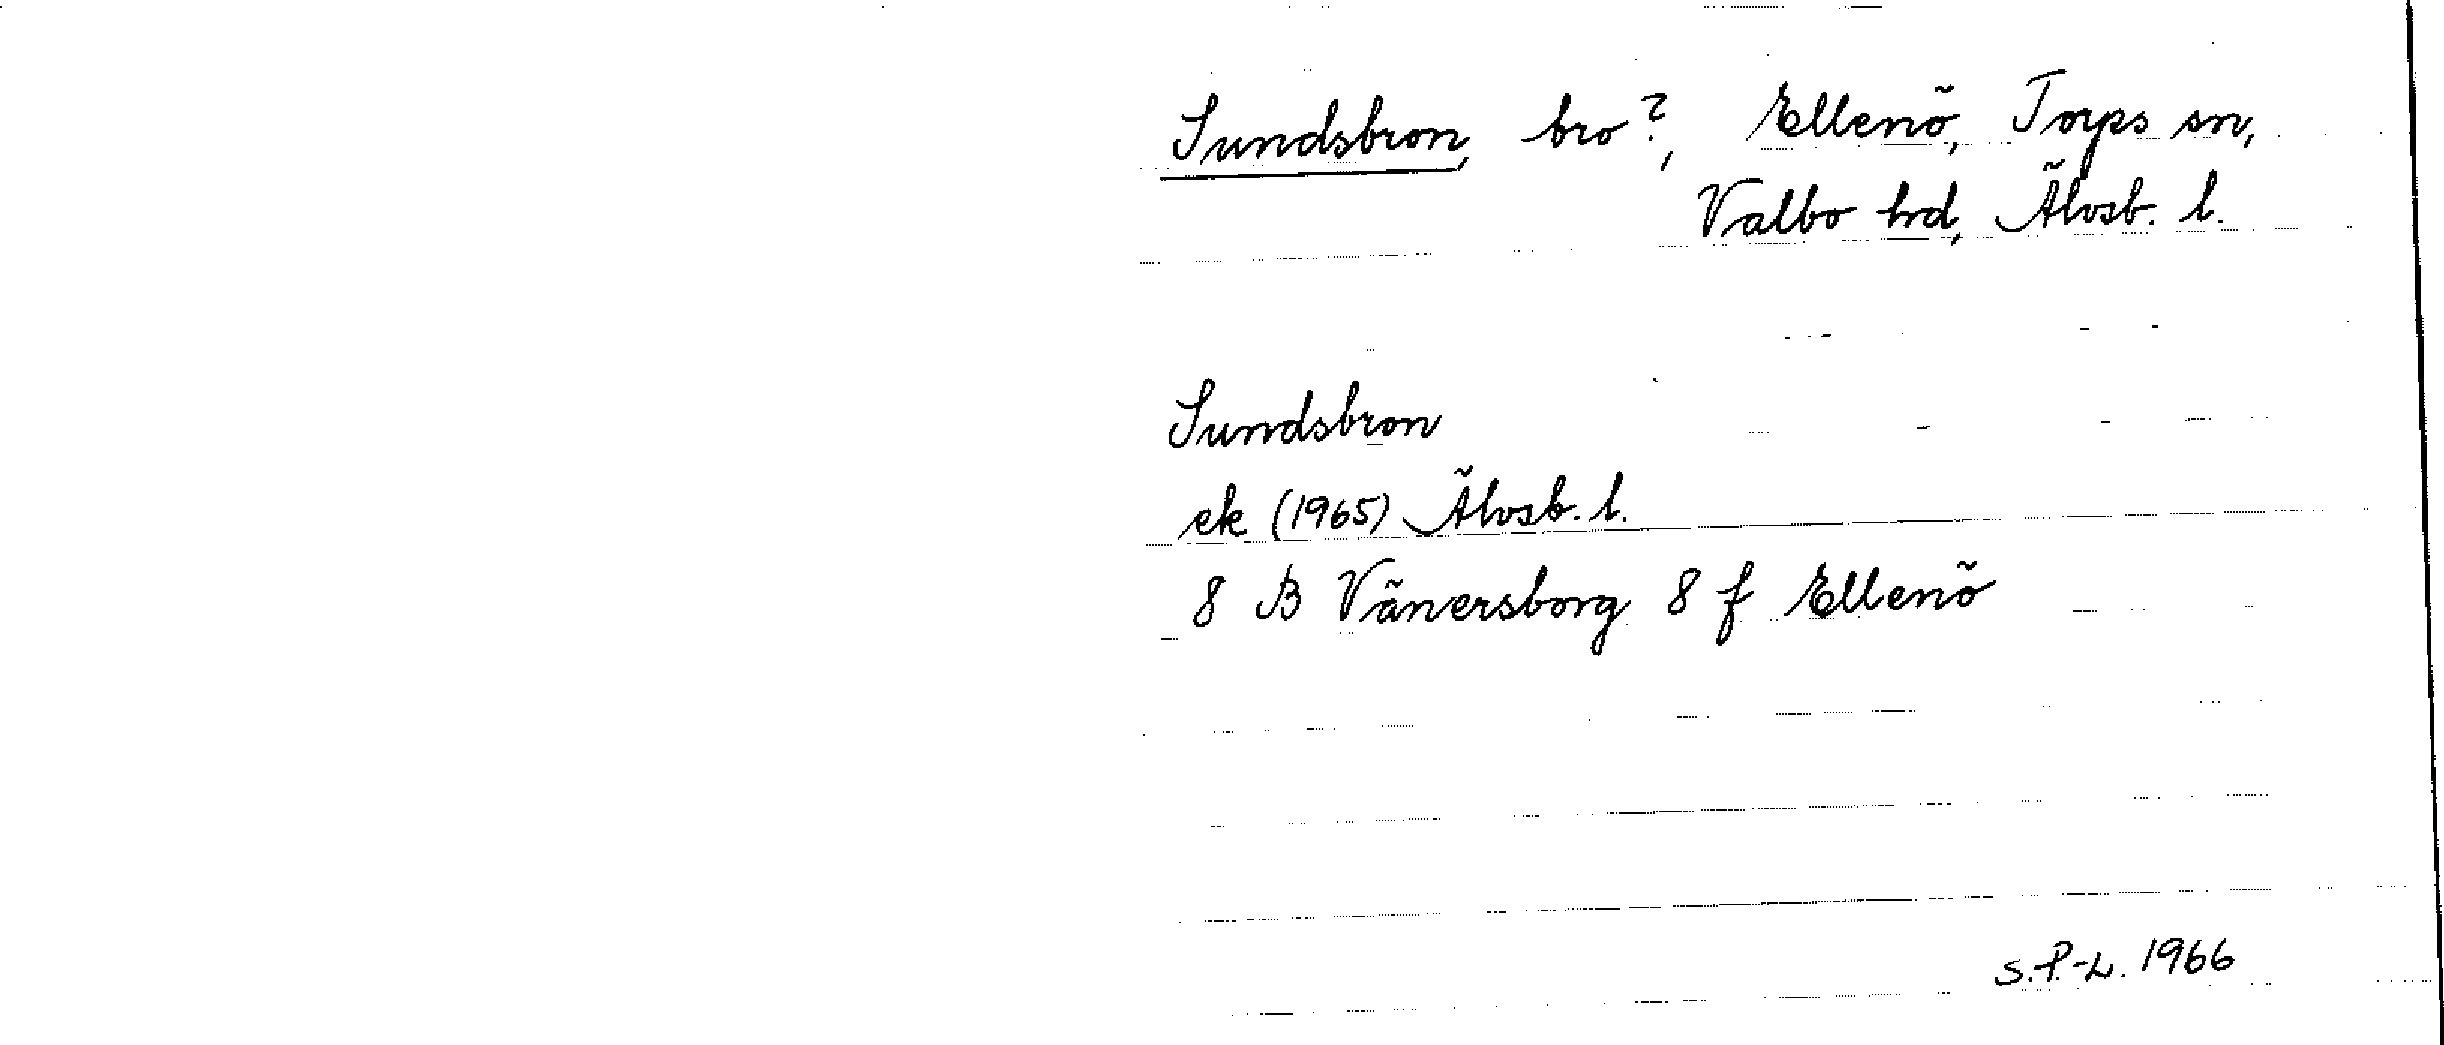 Sundsbron, bro?, Ellenö, Torps sn,
Valbo hd, Älvsb. l.
Sundsbron
ek (1965) Älvsb. l.
8 B Vänersborg 8 f Ellenö
S.P-L. 1966